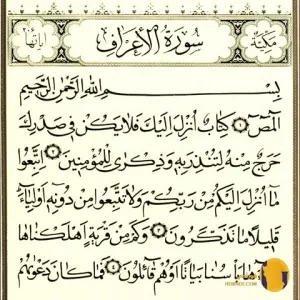 مكية سورة الأعراف آياتها
بِسْمِ اللهِ الرَّحْمٰنِ الرَّحِيمِ
الٓمٓصٓ ١ كِتَابٌ أُنْزِلَ إِلَيْكَ فَلَا يَكُنْ فِي صَدْرِكَ
حَرَجٌ مِنْهُ لِتُنْذِرَ بِهِ وَذِكْرٰى لِلْمُؤْمِنِينَ ٢ اِتَّبِعُوا
مَا أُنْزِلَ إِلَيْكُمْ مِنْ رَبِّكُمْ وَلَا تَتَّبِعُوا مِنْ دُونِهِ أَوْلِيَاءَ
قَلِيلًا مَا تَذَكَّرُونَ ٣ وَكَمْ مِنْ قَرْيَةٍ أَهْلَكْنَاهَا
بَأْسُنَا بَيَاتًا أَوْ هُمْ قَائِلُونَ ٤ فَمَا كَانَ دَعْوٰيهُمْ